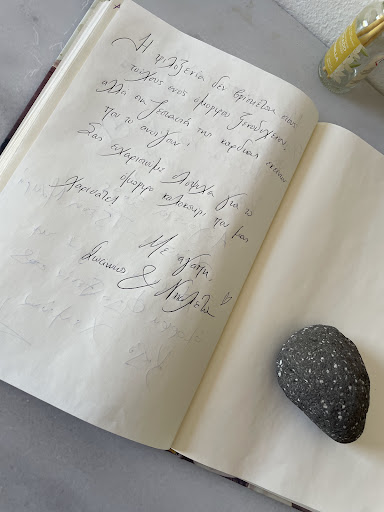 Η φιλοξενία δεν βρίσκεται στους
τοίχους ενός όμορφου ξενοδοχείου,
αλλά στη ζεστασιά της καρδιάς εκείνων
που το ανοίγουν.
Σας ευχαριστούμε για το
όμορφο καλοκαίρι που μας
χαρίσατε!
Με αγάπη,
& Νικολέτα